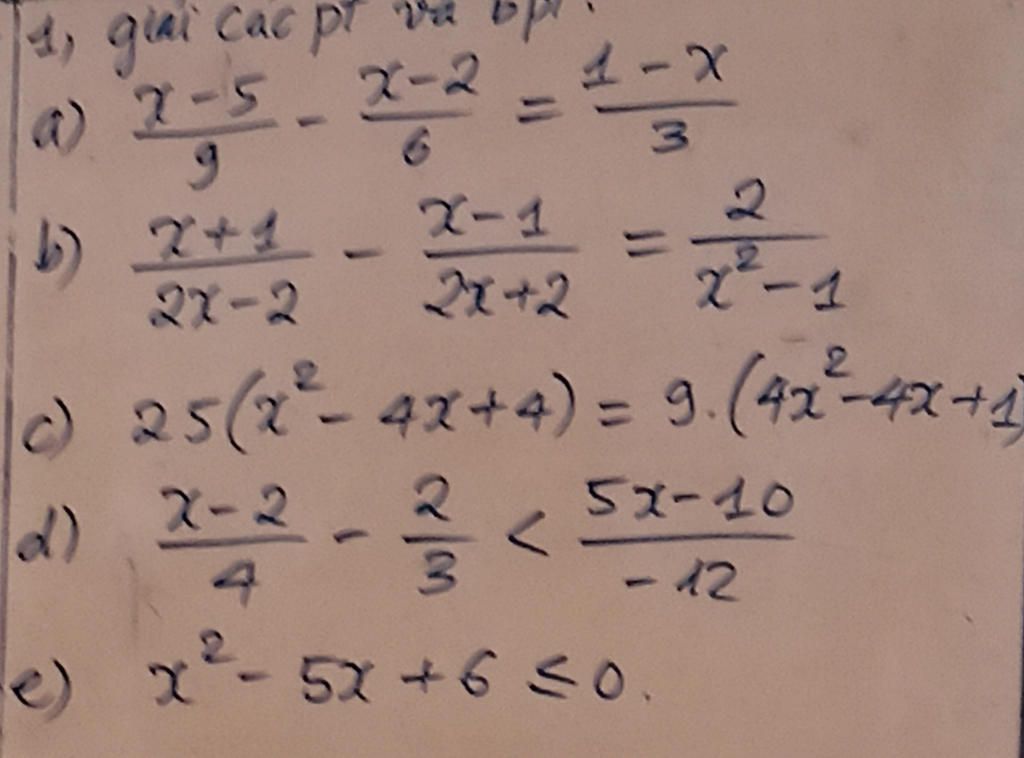 1, giải các pt và bpt.
a) \frac{x-5}{9} - \frac{x-2}{6} = \frac{1-x}{3}
b) \frac{x+1}{2x-2} - \frac{x-1}{2x+2} = \frac{2}{x^2-1}
c) 25(x^2 - 4x + 4) = 9.(4x^2 - 4x + 1)
d) \frac{x-2}{4} - \frac{2}{3} < \frac{5x-10}{-12}
e) x^2 - 5x + 6 ≤ 0.